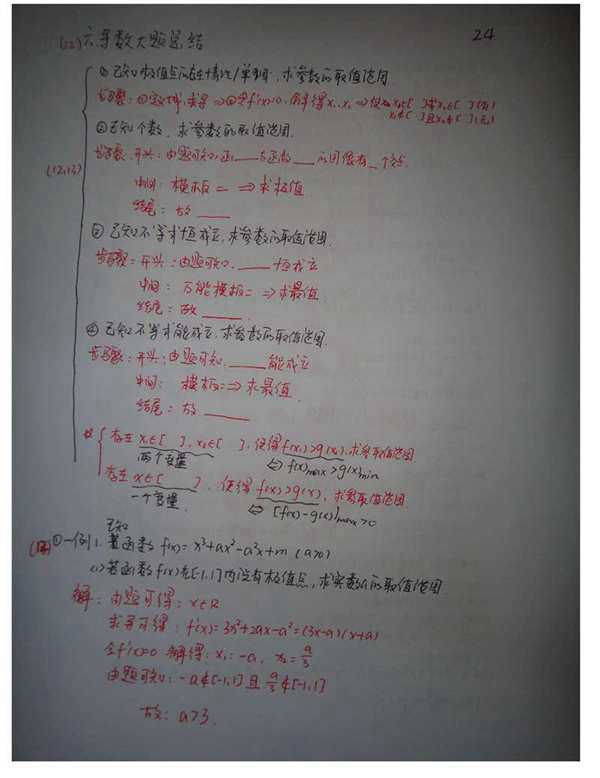 24
(12) 六、导数大题总结
① 已知极值点存在情况/单调,求参数的取值范围
步骤:①定义域,求导 ⇒ ②令f'(x)=0,解得x₁、x₂ ⇒ x₁∈[ ]或x₂∈[ ](有)
x₁∉[ ]且x₂∉[ ](无)
② 已知个数,求参数的取值范围.
步骤:开头:由题可知,函数___与函数___的图像有_个交点
(12,13)
中间:模板二 ⇒ 求极值
结尾:故____
③ 已知不等式恒成立,求参数的取值范围.
步骤:开头:由题可知,____恒成立
中间:万能模板二 ⇒ 求最值
结尾:故____.
④ 已知不等式能成立,求参数的取值范围.
步骤:开头:由题可知,____能成立
中间:模板二 ⇒ 求最值
结尾:故____.
存在x₁∈[ ],x₂∈[ ],使得f(x₁)>g(x₂),求参取值范围
两个变量 ⇔ f(x)max>g(x)min
存在x∈[ ],使得f(x)>g(x),求参取值范围.
一个变量. ⇔ [f(x)-g(x)]max>0
已知
①一例1.若函数f(x)=x³+ax²-a²x+m (a>0)
(1)若函数f(x)在[-1,1]内没有极值点,求实数a的取值范围.
解:由题可得:x∈R
求导可得:f'(x)=3x²+2ax-a²=(3x-a)(x+a)
令f'(x)=0 解得:x₁=-a, x₂=a/3
由题可知:-a∉[-1,1]且a/3∉[-1,1]
故:a>3.